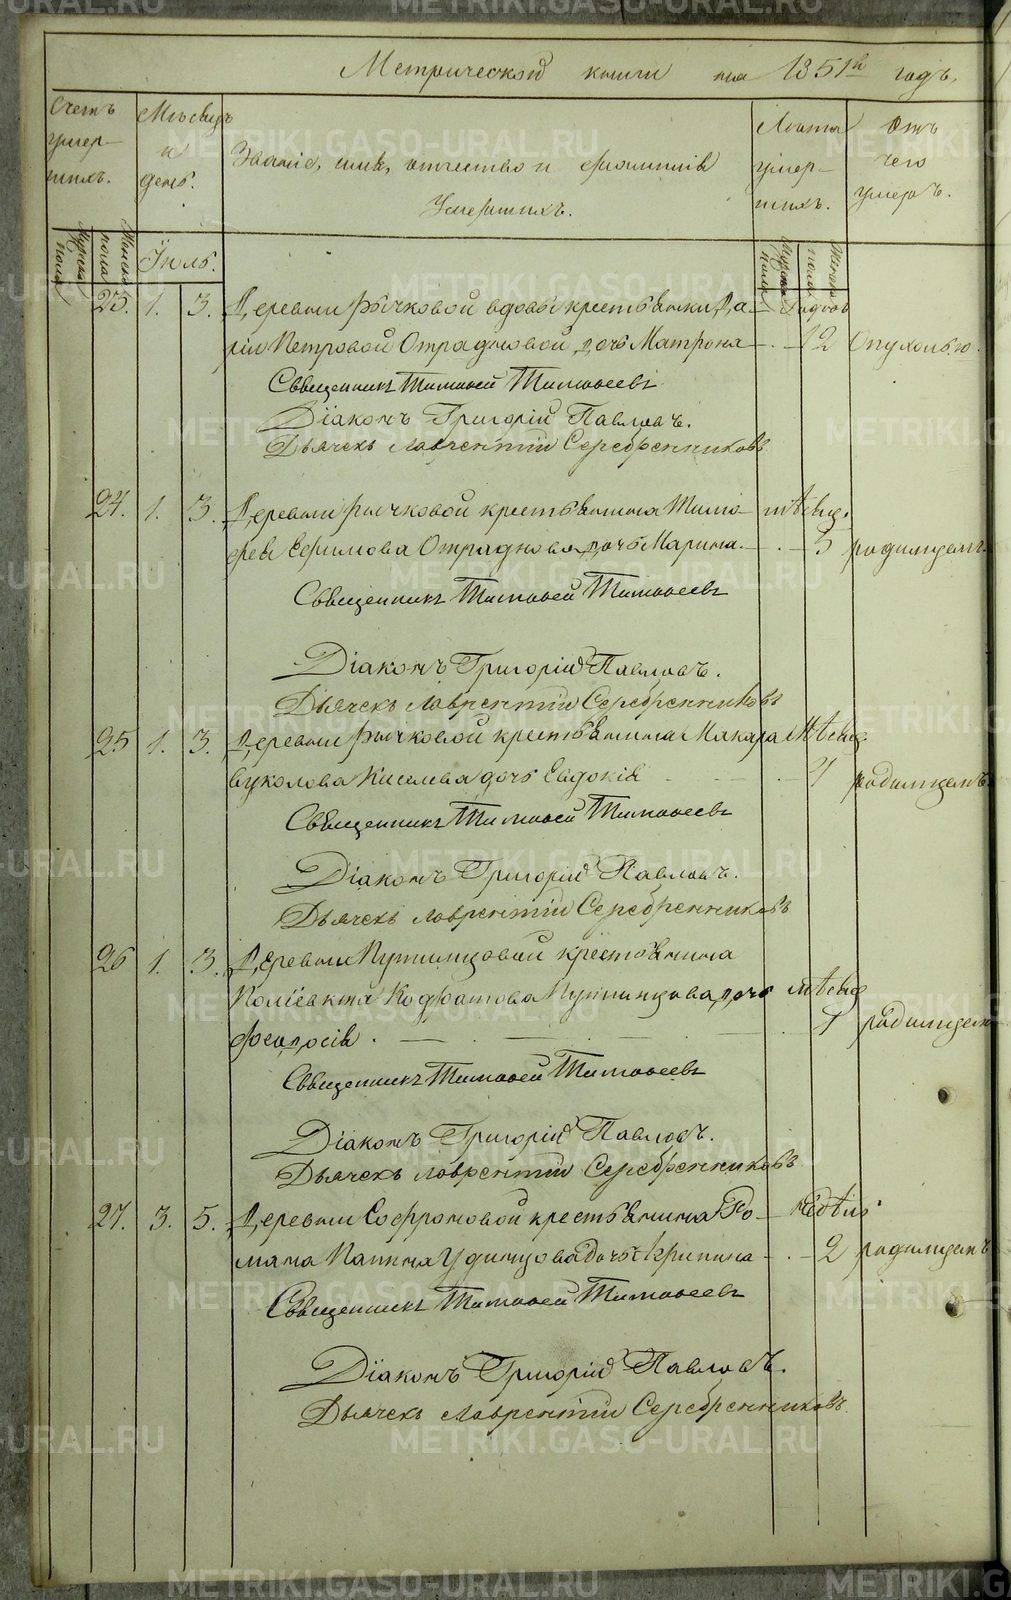 Метрической книги на 1851й годъ.
Счетъ умер- шихъ.
Мѣсяцъ и день.
Званіе, имя, отчество и фамилія
Умершихъ.
Лѣта умер- шихъ.
Отъ чего умеръ.
Мужска пола
Женска пола
Іюль.
Мужска пола
Женска пола
23. 1. 3. Деревни Рычковой вдовы крестьянки Да- Годовъ
ріи Петровой Отрадновой дочь Матрона 12 Опухолью.
Священникъ Тимофей Тимофеевъ
Діаконъ Григорій Павловъ.
Дьячекъ Лаврентій Серебренниковъ
24. 1. 3. Деревни Рычковой крестьянина Тимо- мѣсяц.
фея Ефимова Отраднова дочь Марина. 3 родимцемъ.
Священникъ Тимофей Тимофеевъ
Діаконъ Григорій Павловъ.
Дьячекъ Лаврентій Серебренниковъ
25 1. 3. Деревни Рычковой крестьянина Макара Мѣсяц.
Вуколова Киселева дочь Евдокія родимцемъ.
Священникъ Тимофей Тимофеевъ
Діаконъ Григорій Павловъ.
Дьячекъ Лаврентій Серебренниковъ
26 1. 3. Деревни Путилцовой крестьянина
Полиевкта дочь мѣсяц
Феодосія. родимцем
Священникъ Тимофей Тимофеевъ
Діаконъ Григорій Павловъ.
Дьячекъ Лаврентій Серебренниковъ
27. 3. 5. Деревни Софроновой крестьянина Ро- недѣль
мана Удинцова дочь Крипина 2 родимцемъ
Священникъ Тимофей Тимофеевъ
Діаконъ Григорій Павловъ.
Дьячекъ Лаврентій Серебренниковъ.
METRIKI.GASO-URAL.RU